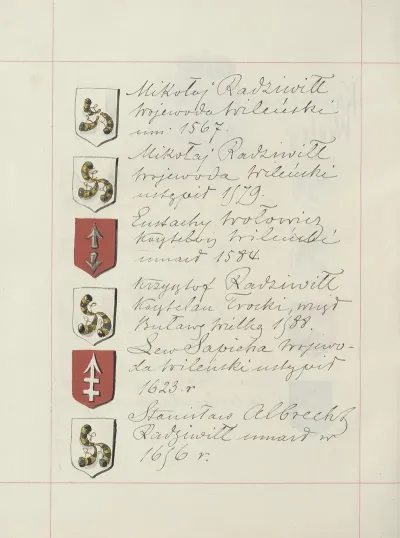 Mikołaj Radziwiłł
wojewoda wileński
um. 1567.
Mikołaj Radziwiłł
wojewoda wileński
ustąpił 1579.
Eustachy Wołowicz
Kasztelan wileński
umarł 1584.
Krzysztof Radziwiłł
Kasztelan Trocki, wziął
Buławę Wielką 1588.
Lew Sapieha Wojewo-
da wileński ustąpił
1623. r
Stanisław Albrecht
Radziwiłł umarł w
1656 r.